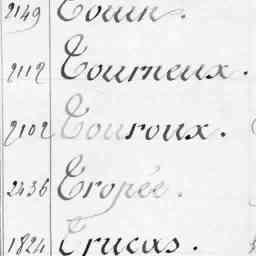 2149 Touin.
2112 Tourneux.
2102 Touroux.
2436 Tropée.
1824 Trucas.